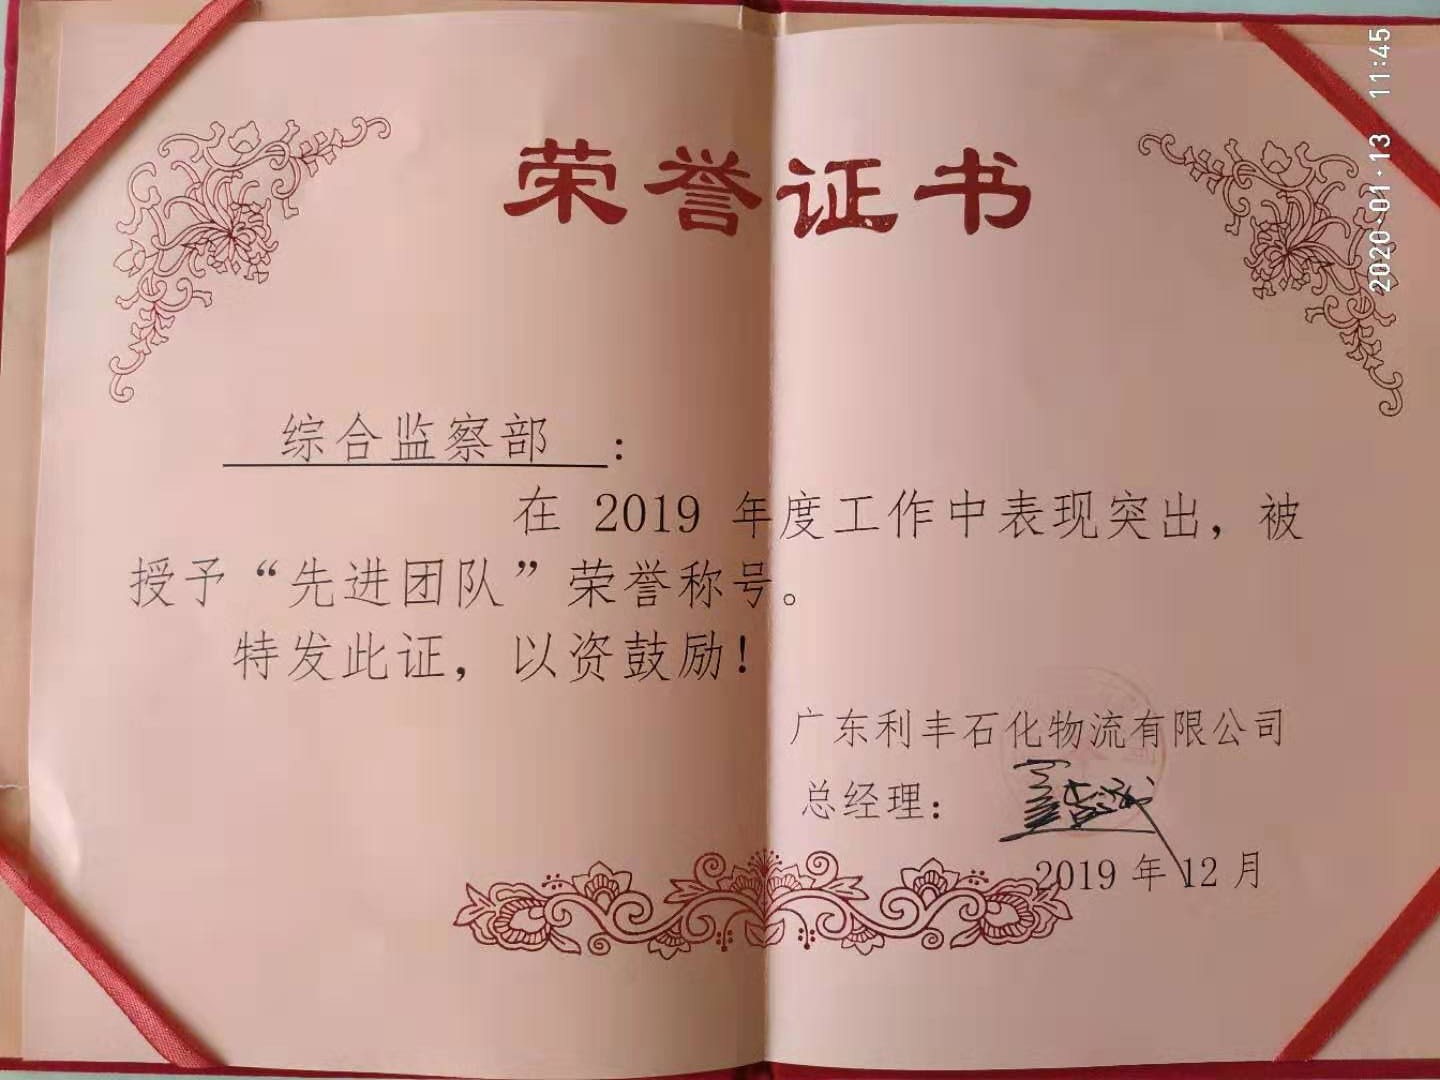 荣誉证书
综合监察部 :
在 2019 年度工作中表现突出，被
授予“先进团队”荣誉称号。
特发此证，以资鼓励！
广东利丰石化物流有限公司
总经理：
2019 年 12 月
2020·01·13 11:45